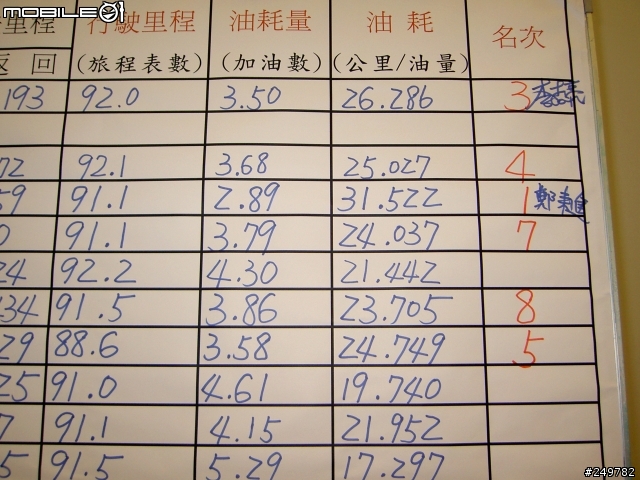 MOBILE01
里程 行駛里程 油耗量 油 耗 名次
返 回 (旅程表數) (加油數) (公里/油量)
193 92.0 3.50 26.286 3
72 92.1 3.68 25.027 4
59 91.1 2.89 31.522 1
0 91.1 3.79 24.037 7
24 92.2 4.30 21.442
434 91.5 3.86 23.705 8
29 88.6 3.58 24.749 5
25 91.0 4.61 19.740
7 91.1 4.15 21.952
5 91.5 5.29 17.297
#249782